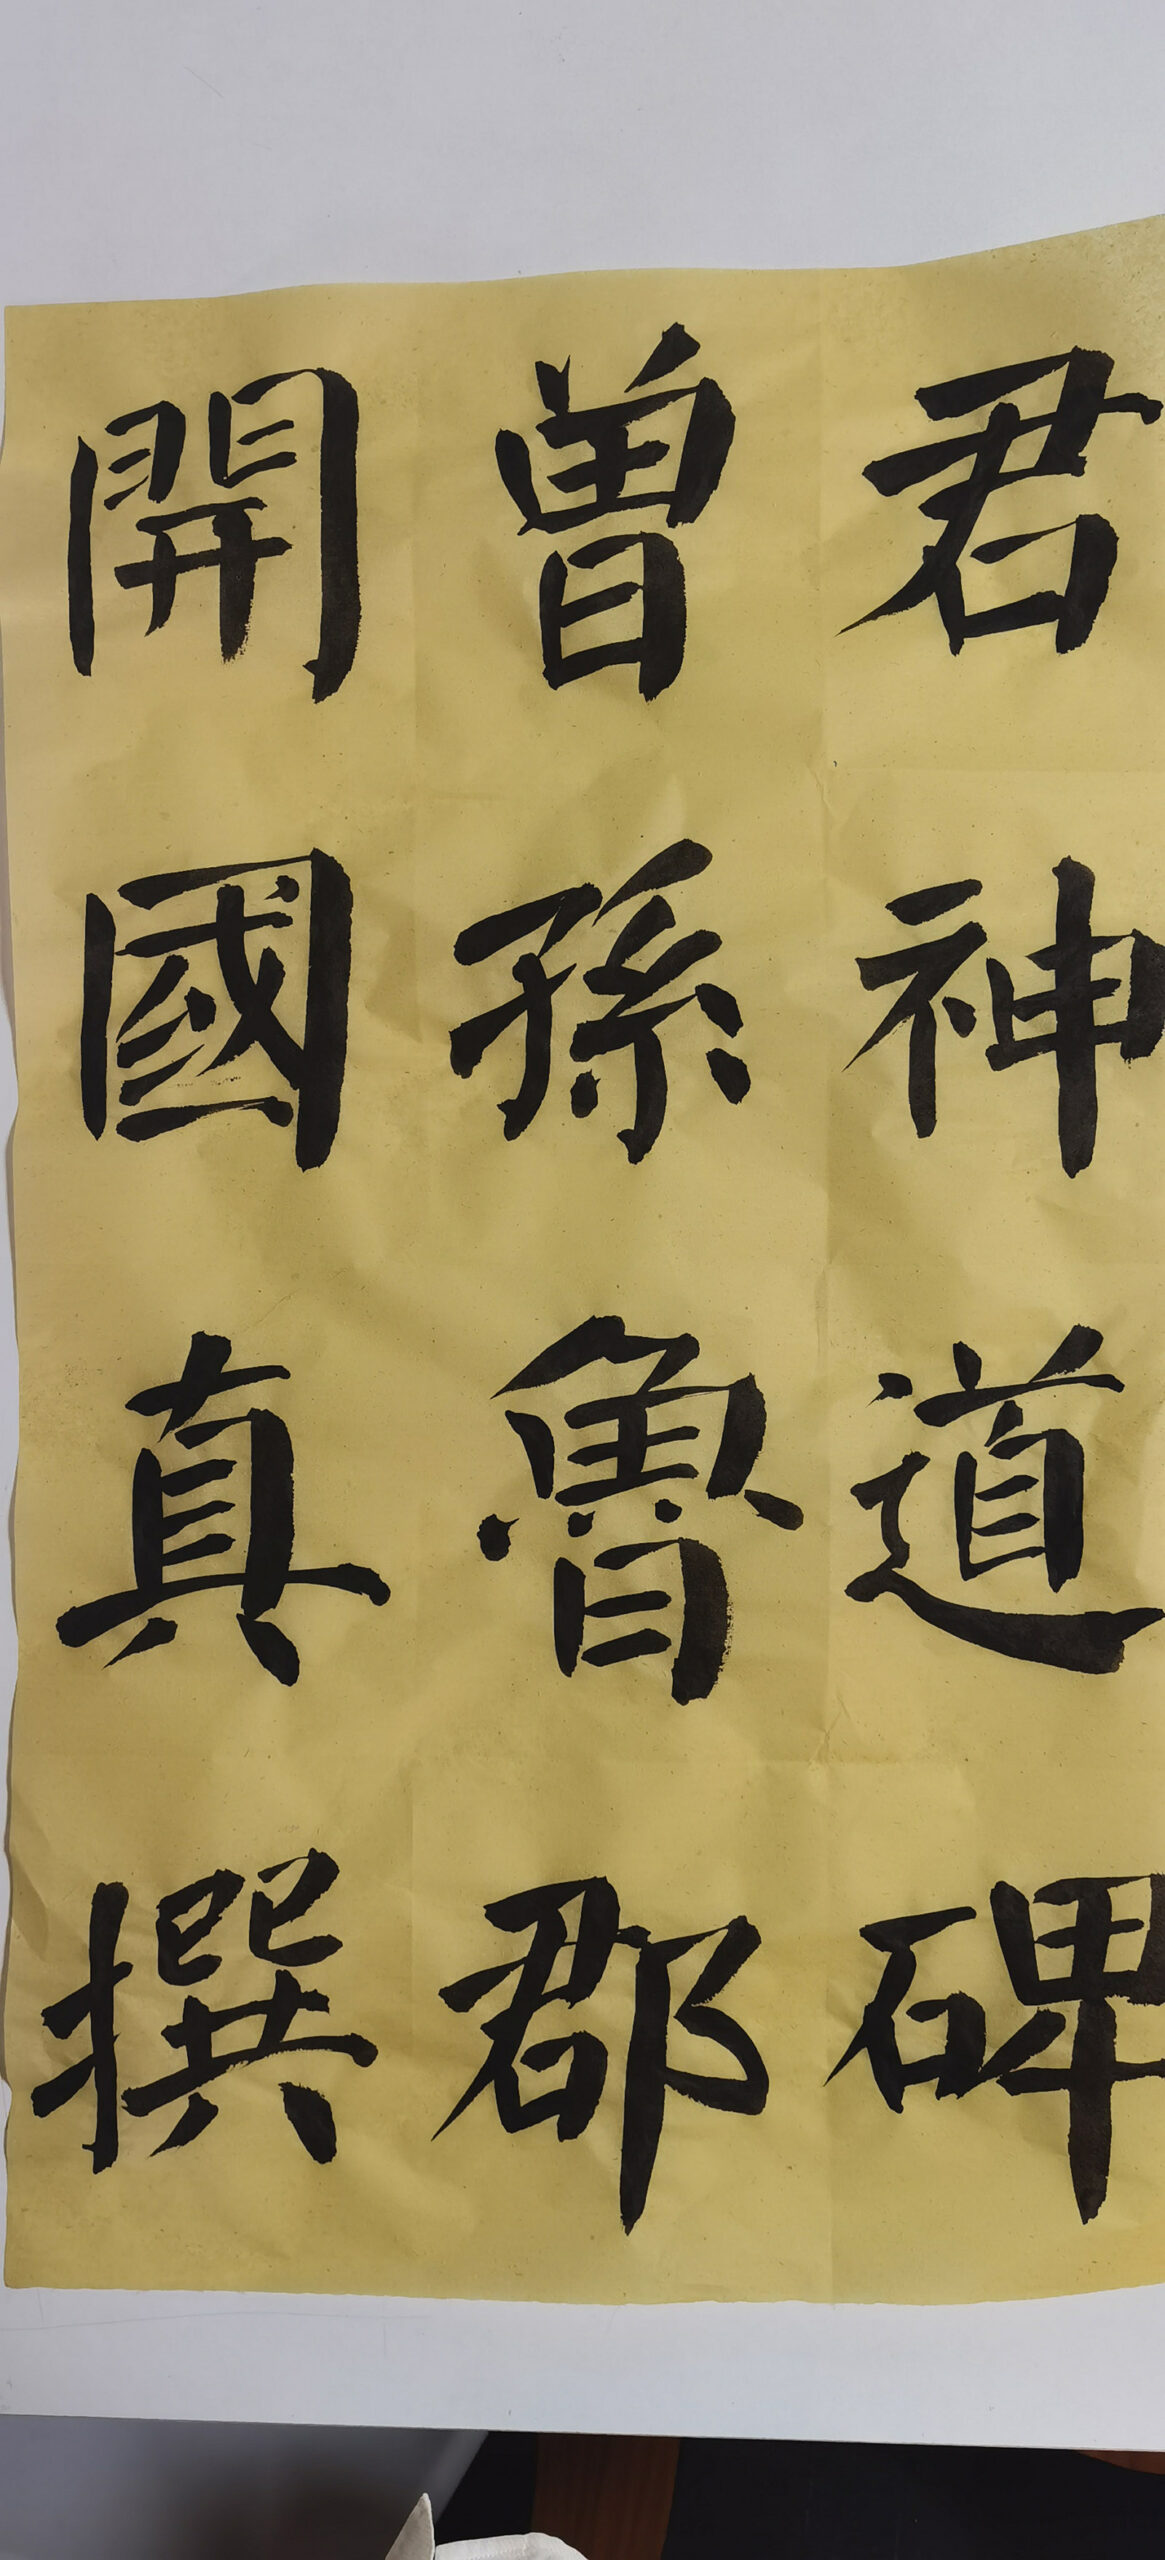 君神道碑
曾孫魯郡
開國真撰